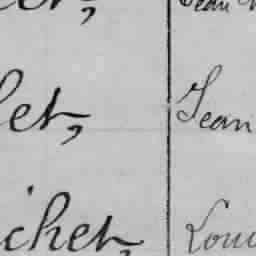 et, Jean
et, Jean
ichet, Loui